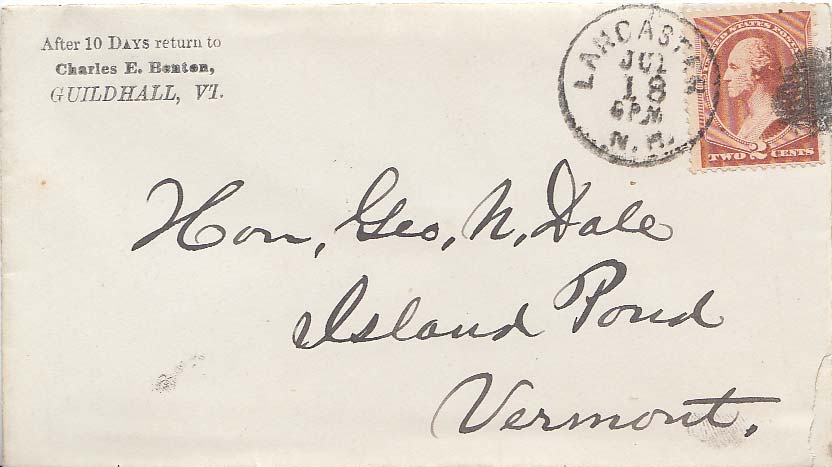 After 10 DAYS return to
Charles E. Benton,
GUILDHALL, VT.
LANCASTER
JUL
18
6 PM
N.H.
UNITED STATES POSTAGE
TWO 2 CENTS
Hon, Geo, N, Dale
Island Pond
Vermont,